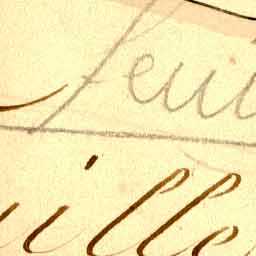 feui
ille